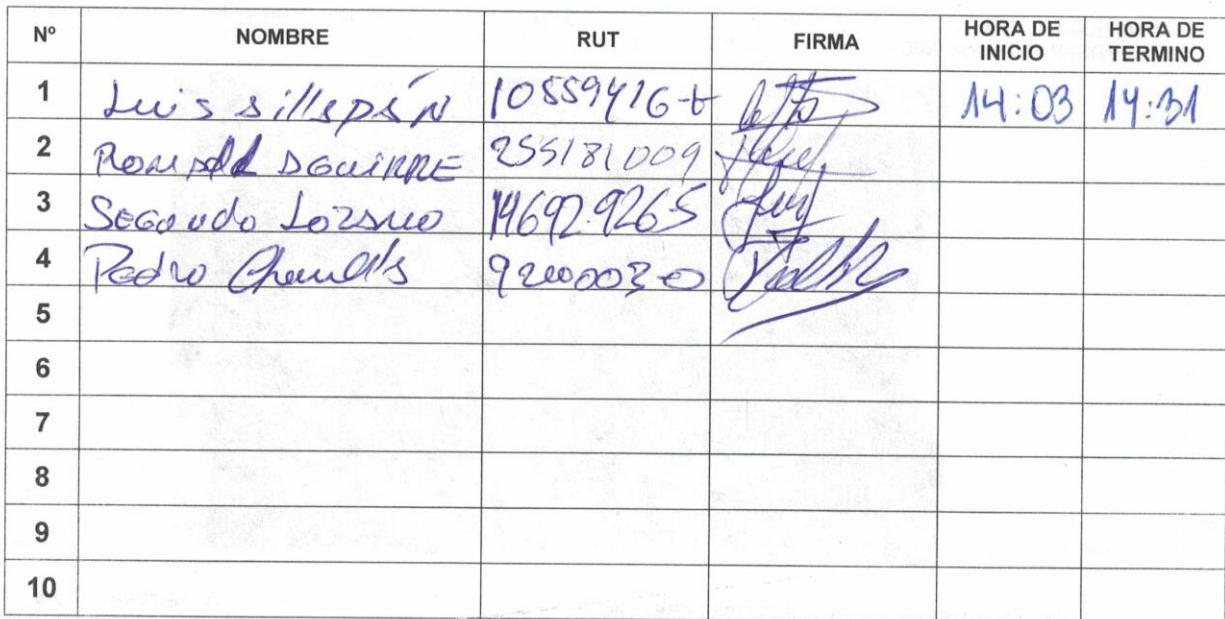 Nº NOMBRE RUT FIRMA HORA DE INICIO HORA DE TERMINO
1 Luis Sillapán 10559416-6 14:03 14:31
2 Ronald AGUIRRE 255181009
3 SEGUNDO Lozano 14692.9265
4 Pedro 9200003-0
5
6
7
8
9
10